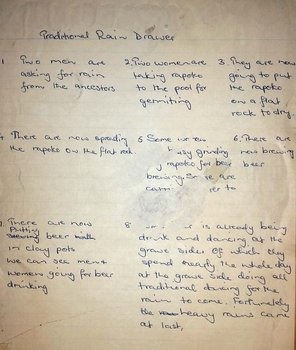 Traditional Rain Drawer
1 Two men are
asking for rain
from the ancestors
2. Two women are
taking rapoko
to the pool for
germiting
3. They are now
going to put
the rapoko
on a flat
rock to dry.
4 There are now spreading
the rapoko on the flat rock
5 Some
busy grinding
rapoko for beer
brewing. are
to
6. There are
now brewing
beer
There are now
Putting
beer
in clay pots
we can see men &
women going for beer
drinking
8 is already being
drunk and dancing at the
grave sides of which they
spend nearly the whole day
at the grave side doing all
traditional dancing for the
rain to come. Fortunately
the heavy rains came
at last,